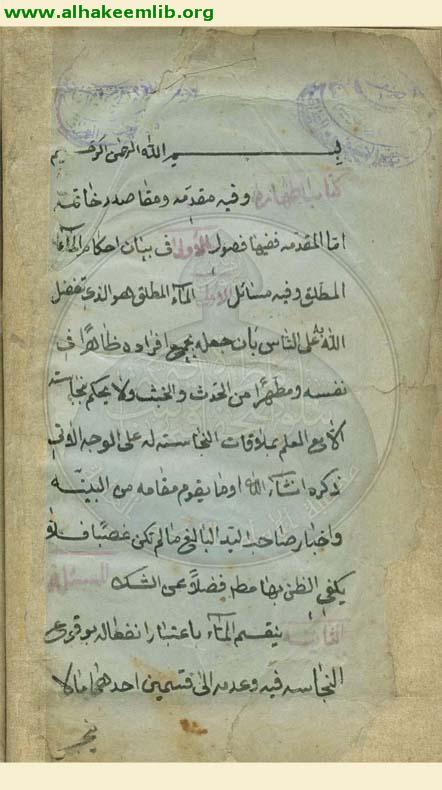 www.alhakeemlib.org
بسم الله الرحمن الرحيم
كتاب الطهارة وفيه مقدمه ومقاصد وخاتمه
امّا المقدمه ففيها فصول الأولى فى بيان احكام الماء
المطلق وفيه مسائل الاولى الماء المطلق هو الذى تفضل
الله على الناس بان جعله بجميع افراده طاهرًا فى
نفسه ومطهرًا من الحدث والخبث ولا يحكم بنجاسته
الا مع العلم بملاقات النجاسته له على الوجه الاتى
ذكره انشاء الله اوما يقوم مقامه من البينه
واخبار صاحب اليد البالغ مالم تكن غصبًا فلا
يكفى الظن بها فضلاً عن الشك المسئلة
الثانية ينقسم الماء باعتبار انفعاله بوقوع
النجاسه فيه وعدمه الى قسمين احدهما مالا
ينجس